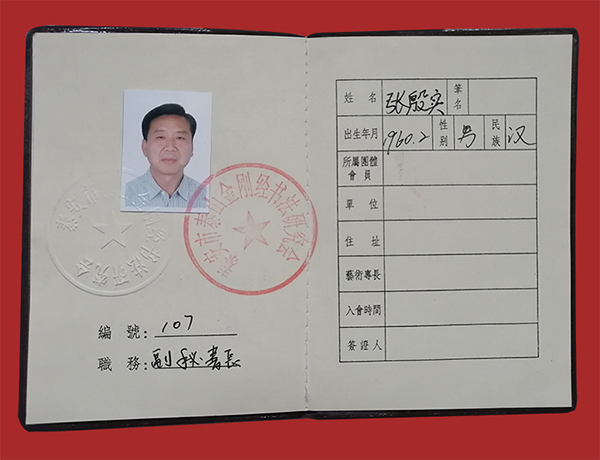 泰安市泰山金刚经书法研究会
編號：107
職務：副秘書長
姓名 张殷实 筆名
出生年月 1960.2 性別 男 民族 汉
所屬團體會員
單位
住址
藝術專長
入會時間
簽證人